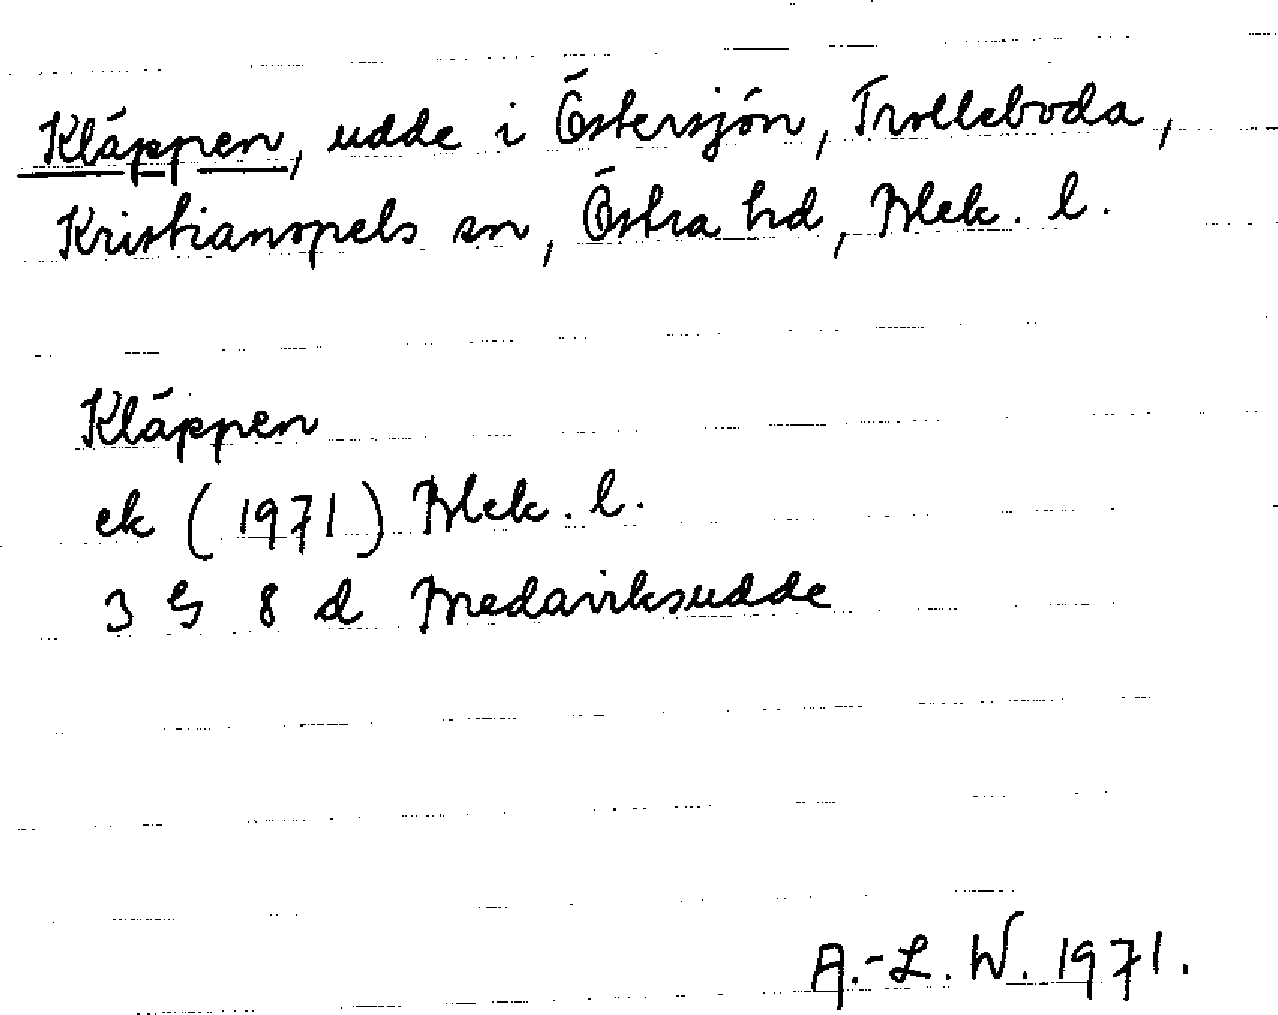 Kläppen, udde i Östersjön, Trolleboda,
Kristianopels sn, Östra hd, Blek. l.
Kläppen
ek (1971) Blek. l.
3 G 8 d Bredaviksudde
A.-L. W. 1971.